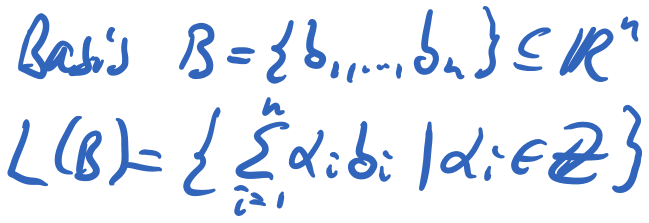 Basis B = {b₁, ..., bₙ} ⊆ ℝⁿ
L(B) = { ∑ᵢ₌₁ⁿ αᵢbᵢ | αᵢ ∈ ℤ }